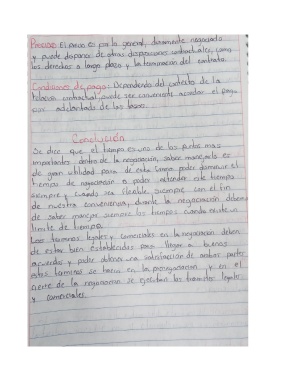 Precio: El precio es por lo general, duramente negociado
y puede disponer de otras disposiciones contractuales, como
los derechos a largo plazo y la terminación del contrato.
Condiciones de pago: Dependiendo del contexto de la
relación contractual, puede ser conveniente acordar el pago
por adelantado de los bienes.
Conclusión
Se dice que el tiempo es uno de los puntos mas
importantes dentro de la negociación, saber manejarlo es
de gran utilidad para de esta forma poder disminuir el
tiempo de negociación o poder extender este tiempo
siempre y cuando sea flexible siempre con el fin
de nuestra conveniencia, durante la negociación debemos
de saber manejar siempre los tiempos cuando existe un
limite de tiempo.
Los terminos legales y comerciales en la negociación deben
de estar bien establecidos para llegar a buenos
acuerdos y poder obtener una satisfacción de ambas partes
estos terminos se tocan en la prenegociación y en el
cierre de la negociación se ejecutan los tramites legales
y comerciales.